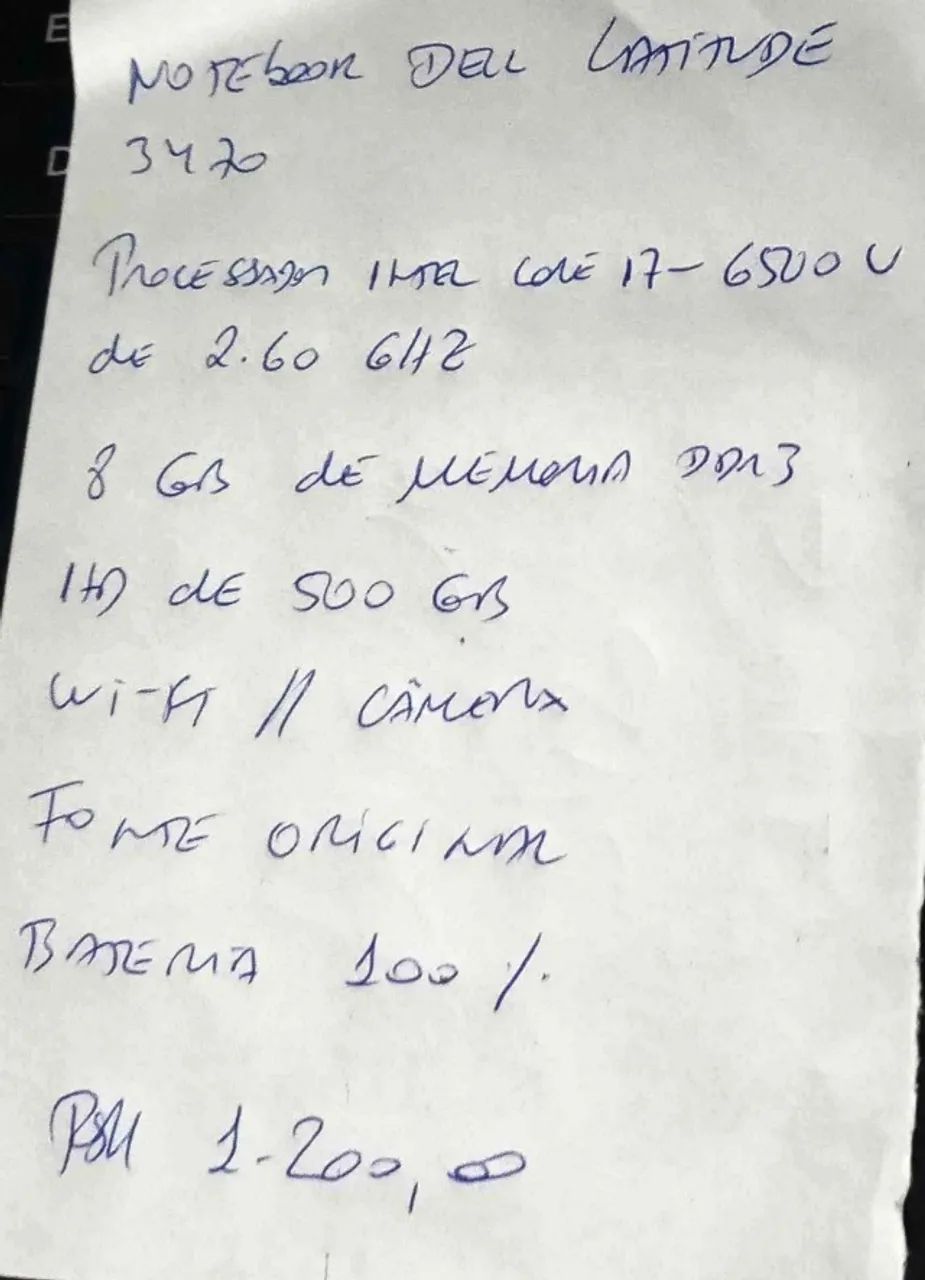 NOTEbook DELL LATITUDE
3470
PROCESSADOR INTEL CORE I7-6500 U
dE 2.60 GHZ
8 GB dE MEMORIA DDR3
HD dE 500 GB
Wi-Fi // CÂMERA
FONTE ORIGINAL
BATERIA 100 %.
1.200,00
E
D